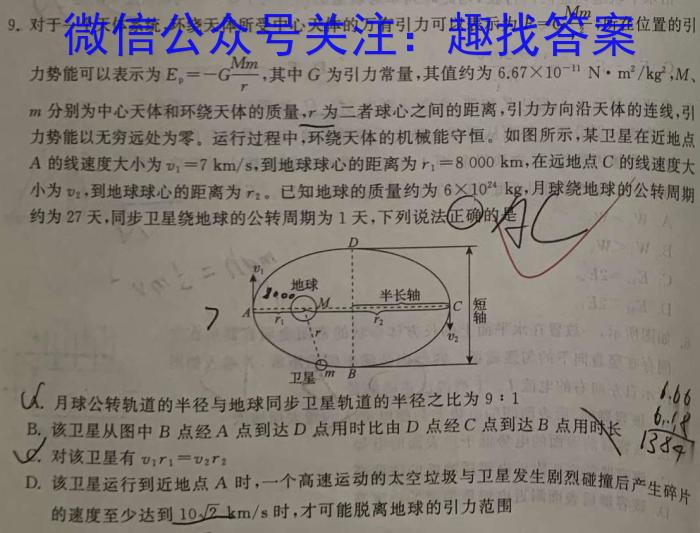 9. 对于 天体系统,环绕天体所受中心天体的万有引力可以表示为F= Mm ,所在位置的引
微信公众号关注：趣找答案
力势能可以表示为 Eₚ=-G Mm/r,其中 G 为引力常量,其值约为 6.67×10⁻¹¹ N·m²/kg²,M、
m 分别为中心天体和环绕天体的质量,r 为二者球心之间的距离,引力方向沿天体的连线,引
力势能以无穷远处为零。运行过程中,环绕天体的机械能守恒。如图所示,某卫星在近地点
A 的线速度大小为 v₁=7 km/s,到地球球心的距离为 r₁=8 000 km,在远地点 C 的线速度大
小为 v₂,到地球球心的距离为 r₂。已知地球的质量约为 6×10²⁴ kg,月球绕地球的公转周期
约为 27 天,同步卫星绕地球的公转周期为 1 天,下列说法正确的是
AC
D
v₁
地球
8000
M
半长轴
短轴
A
r₁
r₂
C
7
r
v₂
卫星
m
B
A. 月球公转轨道的半径与地球同步卫星轨道的半径之比为 9∶1
B. 该卫星从图中 B 点经 A 点到达 D 点用时比由 D 点经 C 点到达 B 点用时长
C. 对该卫星有 v₁r₁=v₂r₂
D. 该卫星运行到近地点 A 时,一个高速运动的太空垃圾与卫星发生剧烈碰撞后产生碎片
的速度至少达到 10√2 km/s 时,才可能脱离地球的引力范围